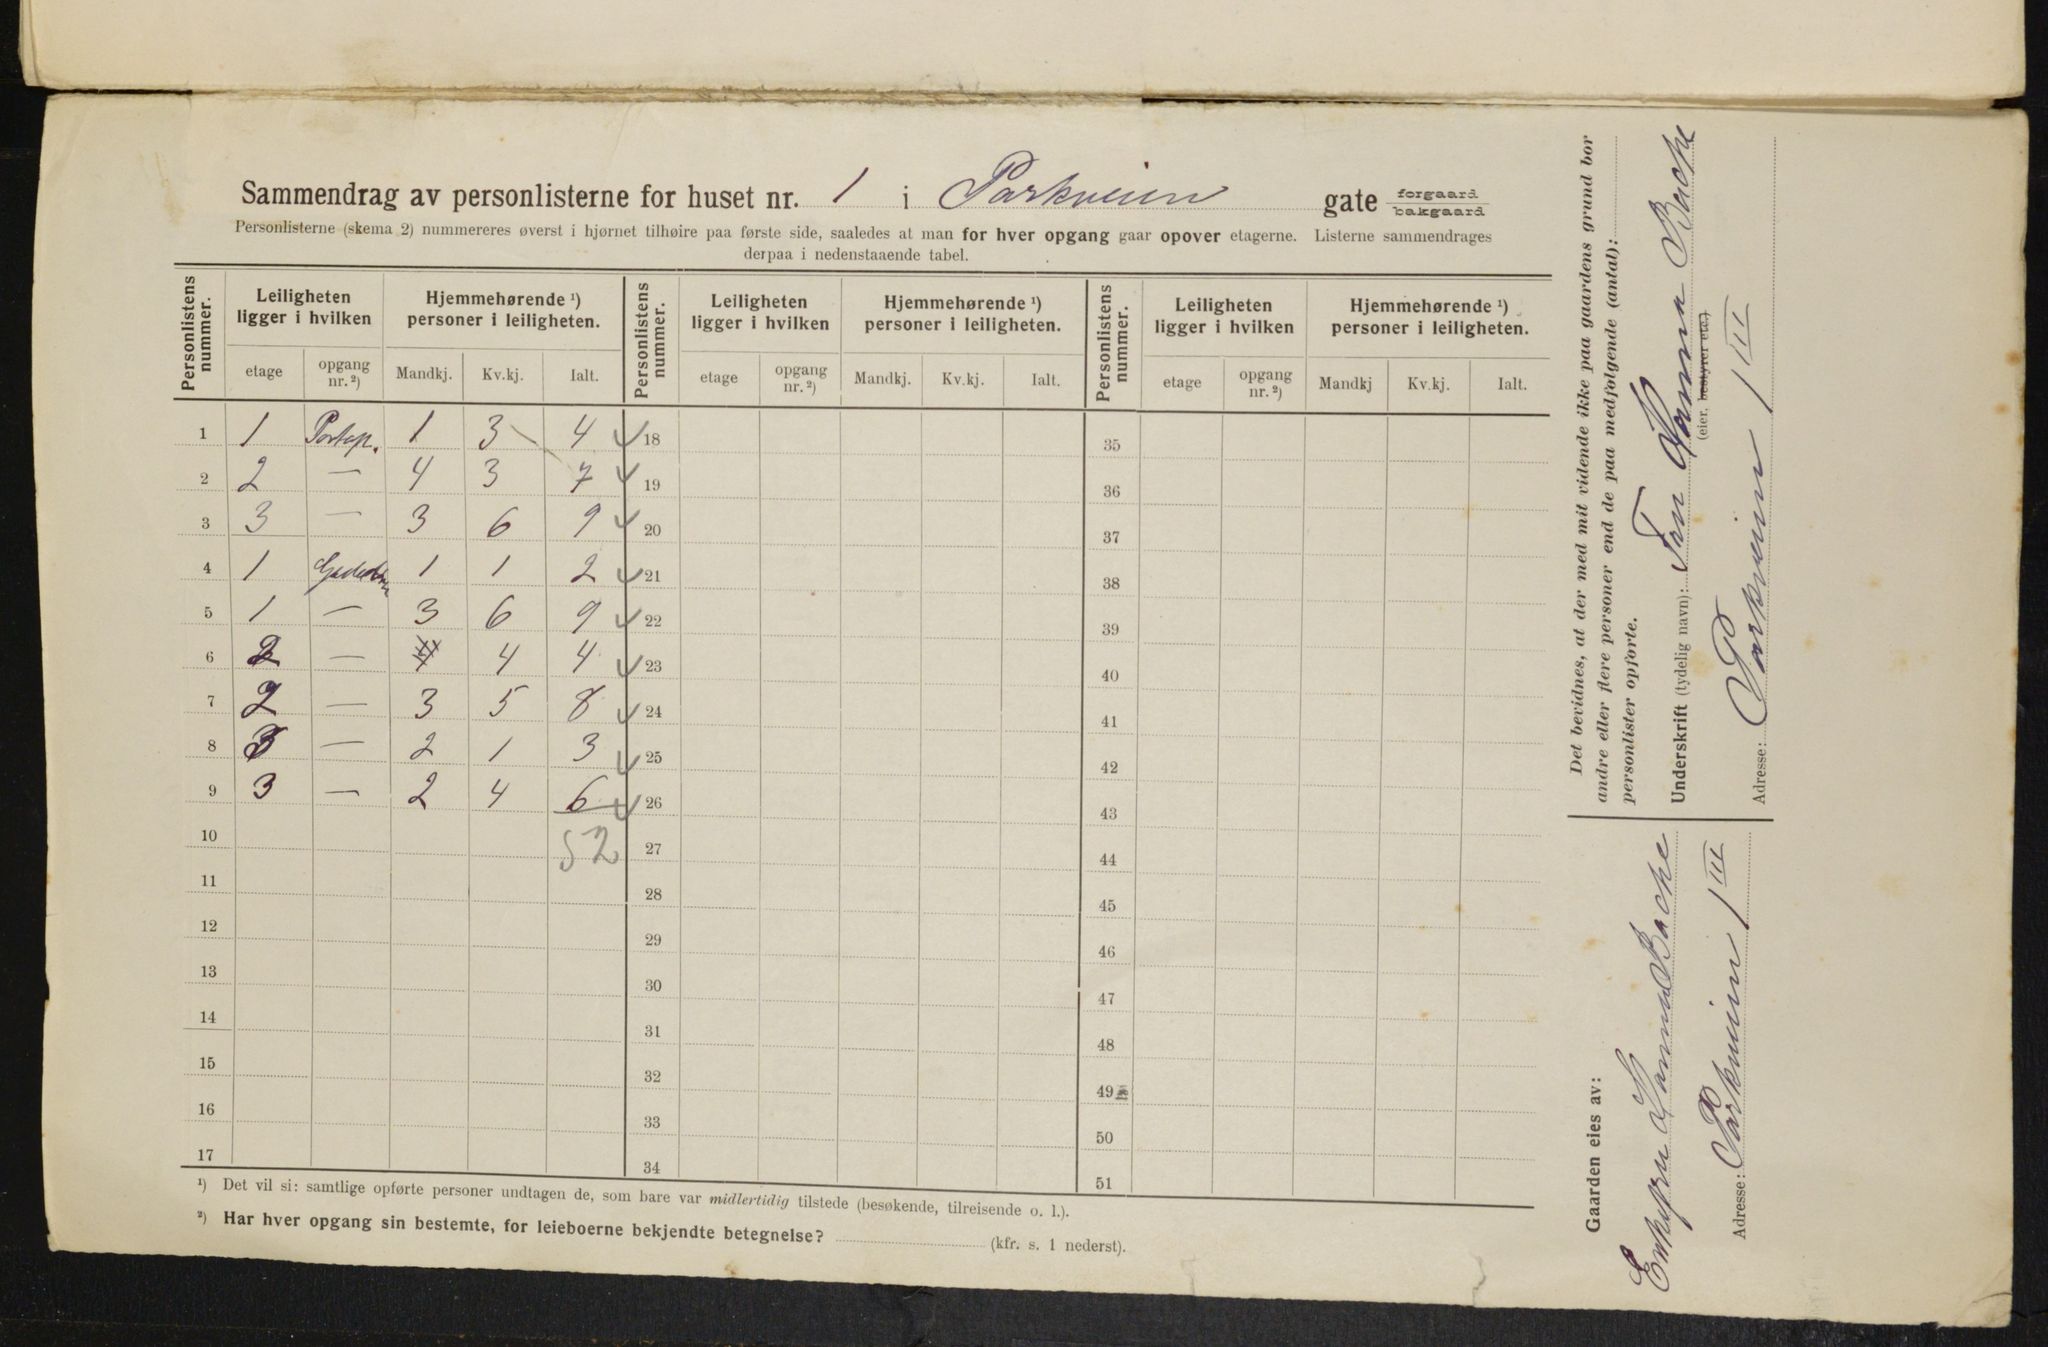 Sammendrag av personlisterne for huset nr. 1 i Parkveien gate forgaard bakgaard
Personlisterne (skema 2) nummereres øverst i hjørnet tilhøire paa første side, saaledes at man for hver opgang gaar opover etagerne. Listerne sammendrages
derpaa i nedenstaaende tabel.
Personlistens nummer. Leiligheten ligger i hvilken Hjemmehørende ¹) personer i leiligheten. Personlistens nummer. Leiligheten ligger i hvilken Hjemmehørende ¹) personer i leiligheten. Personlistens nummer. Leiligheten ligger i hvilken Hjemmehørende ¹) personer i leiligheten.
etage opgang nr. ²) Mandkj. Kv.kj. Ialt. etage opgang nr. ²) Mandkj. Kv.kj. Ialt. etage opgang nr. ²) Mandkj Kv.kj. Ialt.
1 1 Portop. 1 3 4 18 35
2 2 — 4 3 7 19 36
3 3 — 3 6 9 20 37
4 1 1 1 2 21 38
5 1 — 3 6 9 22 39
6 2 — 4 4 23 40
7 2 — 3 5 8 24 41
8 3 — 2 1 3 25 42
9 3 — 2 4 6 26 43
10 52 27 44
11 28 45
12 29 46
13 30 47
14 31 48
15 32 49
16 33 50
17 34 51
¹) Det vil si: samtlige opførte personer undtagen de, som bare var midlertidig tilstede (besøkende, tilreisende o. l.).
²) Har hver opgang sin bestemte, for leieboerne bekjendte betegnelse? (kfr. s. 1 nederst).
Det bevidnes, at der med mit vidende ikke paa gaardens grund bor
andre eller flere personer end de paa medfølgende (antal):
personlister opførte.
Underskrift (tydelig navn): Fru Hanna Backe
(eier, bestyrer etc.)
Adresse: Parkveien 1 III
Gaarden eies av:
Enkefru Hanna Backe
Adresse: Parkveien 1 III